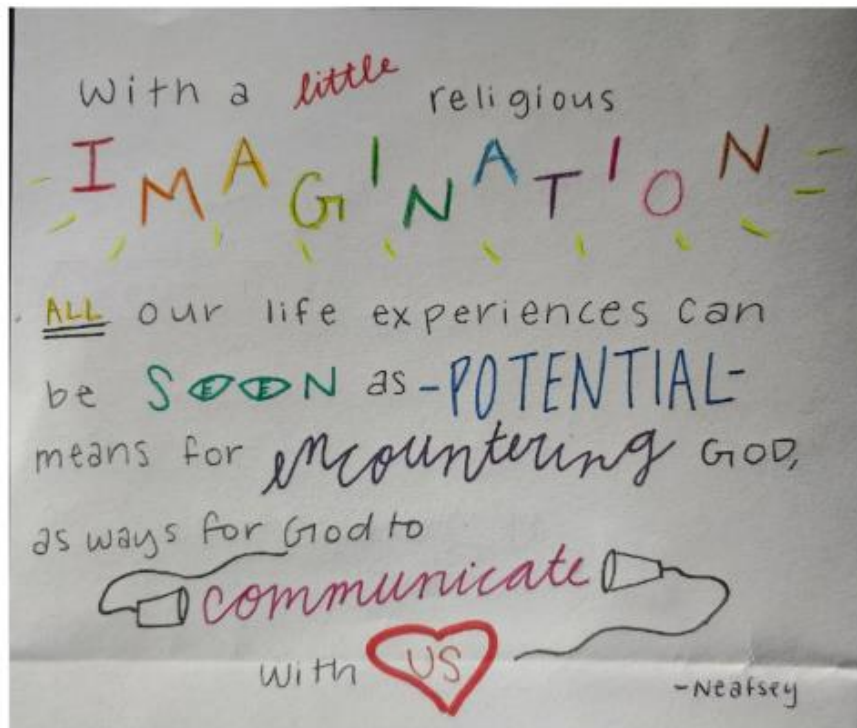 With a little religious
IMAGINATION
ALL our life experiences can
be SEEN as -POTENTIAL-
means for encountering GOD,
as ways for God to
communicate
with US
-Neafsey